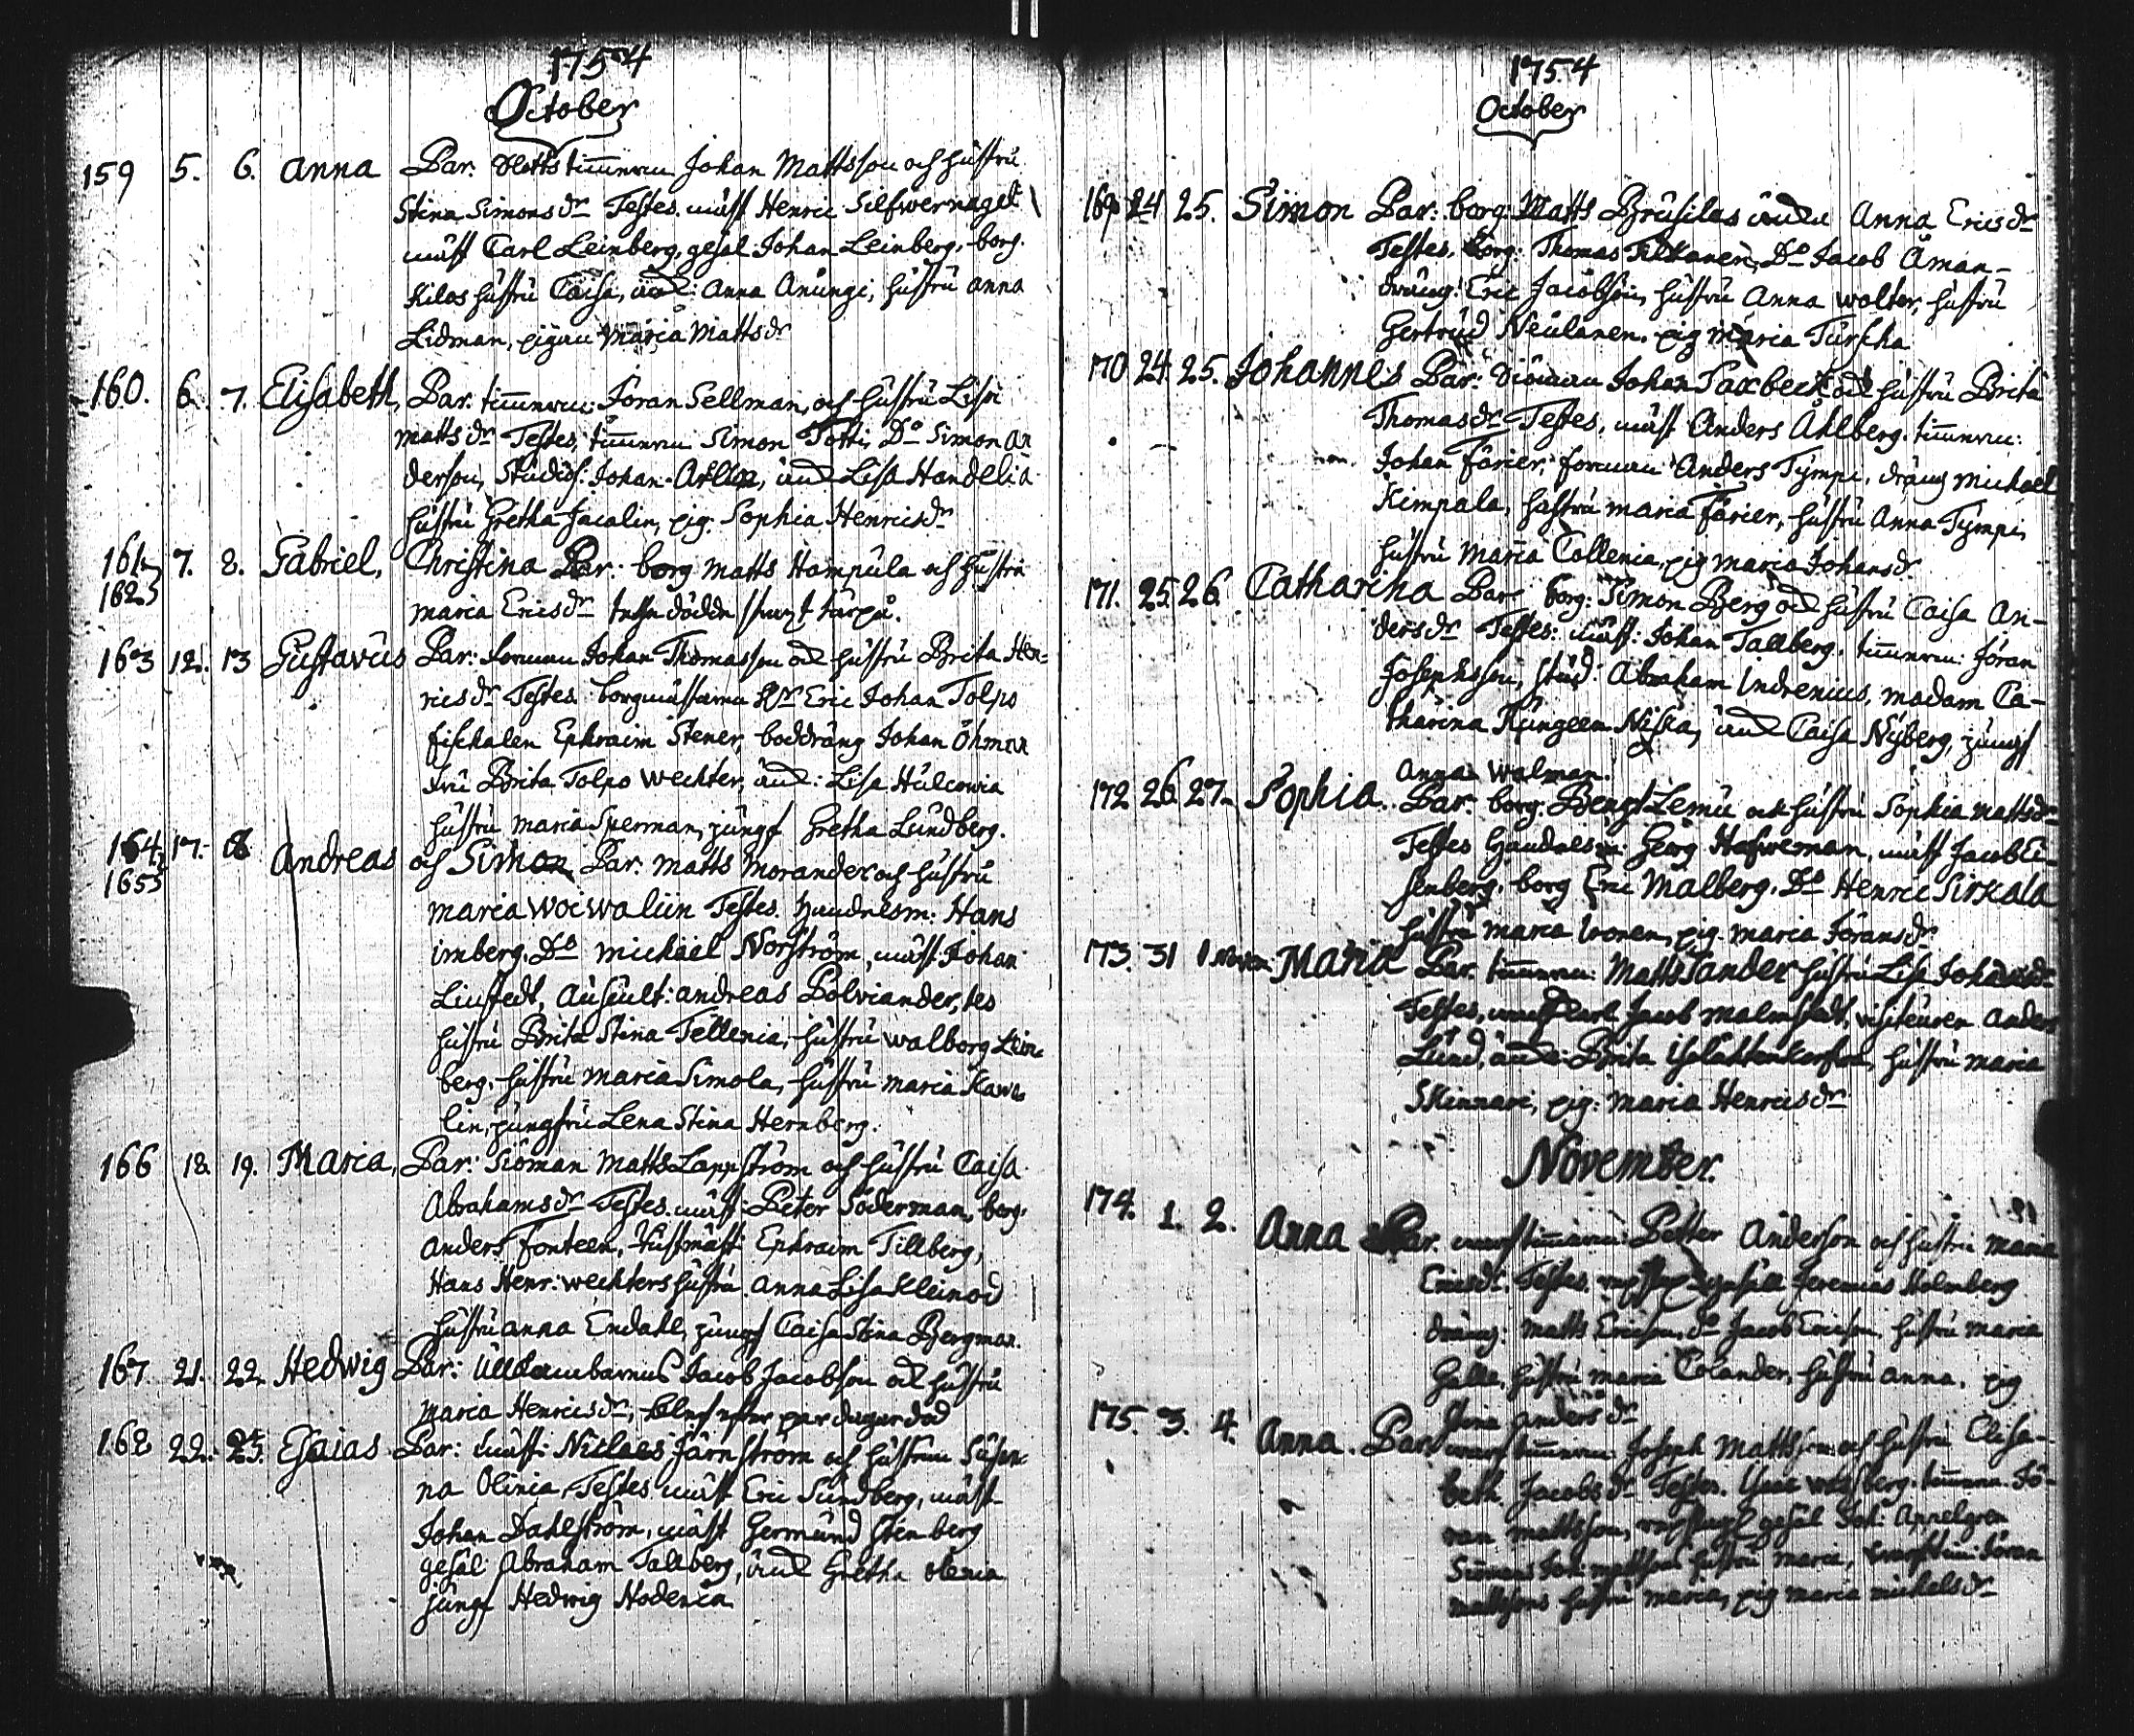 1754
October
159 5. 6. Anna Par. timmerm Johan Mattsson och hustru
Stina Simons dr Testes. mäst Henric Silfwernagel
mäst Carl Leinberg, gesäl Johan Leinberg, borg.
Kilas hustru Caisa, änk: Anna Anungi, hustru Anna
Lidman, pigan Maria Matts dr
160. 6. 7. Elisabeth, Par. timmerm: Jöran Sellman, och hustru Lisa
Matts dr Testes, timmerm Simon Totti, Do Simon An
derson, Studios. Johan, änk Lisa Handelia
hustru Gretha Jacalin, pig. Sophia Henrics dr
161 7. 8. Gabriel, Christina Par: borg Matts Hampula och hustru
162 Maria Erics dr
163 12. 13 Gustavus Par: Johan Thomasson och hustru Brita Hen=
rics dr Testes. borgmästaren Hr Eric Johan Tolpo
fiskalen Ephraim Stener, boddräng Johan Öhman
fru Brita Tolpo Wechter, änk: Lisa Hulconia
hustru Maria Sperman, jungf Gretha Lundberg.
164 17. 18 Andreas och Simon Par. Matts Morander och hustru
165 Maria Woiwaliin Testes. handelsm: Hans
Imberg, Do Michäel Norström, mäst. Johan
Liustedt, Auscult: Andreas Polviander,
hustru Brita Stina Tellenia, hustru Walborg Lein
berg, hustru Maria Simola, hustru Maria Kawe
lin, jungfru Lena Stina Hernberg.
166 18. 19. Maria, Par: Siöman Matts Lappström och hustru Caisa
Abrahams dr Testes. mäst: Peter Söderman, borg.
Anders Fonteen, Ephraim Tillberg,
Hans Henr: Wechters hustru Anna Lisa Kleinod
hustru Anna Endahl, jungf Caisa Stina Bergman.
167 21. 22. Hedwig Par: Jacob Jacobson och hustru
Maria Henrics dr, efter par dagar död
168 22. 23. Esaias Par: mäst: Niclaes Järnström och hustrun Susan
na Olinia Testes mäst Eric Sundberg, mäst
Johan Dahlström, mäst Germund Stenberg
gesäl Abraham Tallberg, änk Gretha Olenia
jungf Hedwig Hodenia
1754
October
169 24 25. Simon Par: borg: Matts Brusilas Anna Erics dr
Testes. borg: Thomas Tilkanen, Do Jacob Åman
dräng: Eric Jacobson, hustru Anna Wolter, hustru
Gertrud Neulanen, pig Maria Turska
170 24. 25. Johannes Par: Johan Taxbeck och hustru Brita
Thomas dr Testes. mäst Anders Åhlberg, timmerm:
Johan Farier, forman Anders Tympi, dräng Michael
Kimpala, hustru Maria Farier, hustru Anna Tympi,
hustru Maria Collenia, pig Maria Johans dr
171. 25. 26. Catharina Par borg: Simon Berg och hustru Caisa An-
ders dr Testes: mäst: Johan Tallberg, timmerm: Jöran
Josephsson, stud: Abraham Indrenius, madam Ca-
tharina Niska, änk Caisa Nyberg, jungf
Anna Walman.
172 26. 27. Sophia. Par. borg. Bengt Lemu och hustru Sophia Matts dr
Testes Handelsm: Georg Hafwerman, mäst Jacob Ei-
senberg, borg Eric Malberg, Do Henric Sirkala
hustru Maria Ivonen, pig. Maria Jörans dr
173. 31 1 Novem. Maria Par. timmerm: Matts Tander hustru Lisa Johans dr
Testes, Jacob Malmstedt, visiteuren Anders
Lund, änk: Brita, hustru Maria
Skinnari, pig: Maria Henrics dr
November.
174. 1. 2. Anna Par. Petter Anderson och hustru Maria
Erics dr. Testes. gesäll Jeremias Holmberg
dräng: Matts Ericson, do Jacob Ericson, hustru Maria
hustru Maria Colander, hustru Anna, pig
Stina Anders dr
175. 3. 4. Anna. Par Joseph Mattson och hustru Elisa-
beth Jacobs dr Testes. Jö-
ran Mattsson, gesäl Joh: Appelgren
Joh: Mattsson hustru Maria, Jöran
Mattsons hustru Maria, pig Maria Michels dr